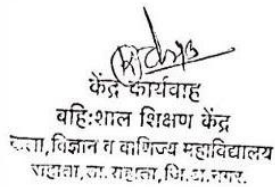 केंद्र कार्यवाह
वहि:शाल शिक्षण केंद्र
कला,विज्ञान व वाणिज्य महाविद्यालय
राहाता,ता.राहाता,जि.अ.नगर.